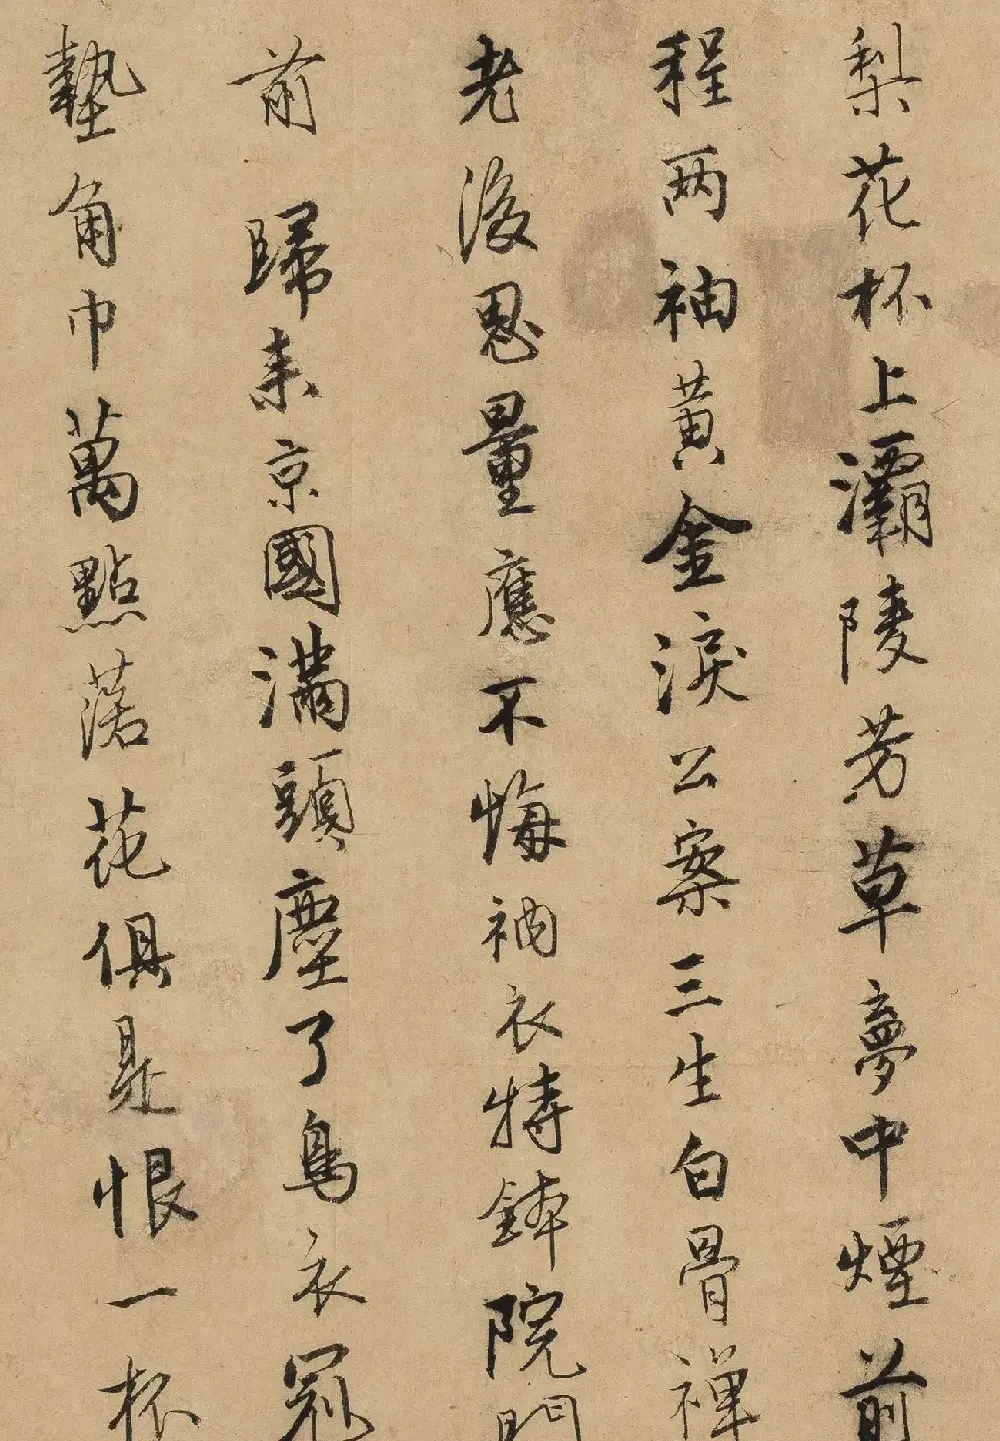 梨花杯上灞陵芳草夢中煙前
程两袖黃金淚公案三生白骨禅
老後思量應不悔衲衣持鉢院門
前 歸来京國滿頭塵了烏衣冢
墊角巾萬點落花俱是恨一杯